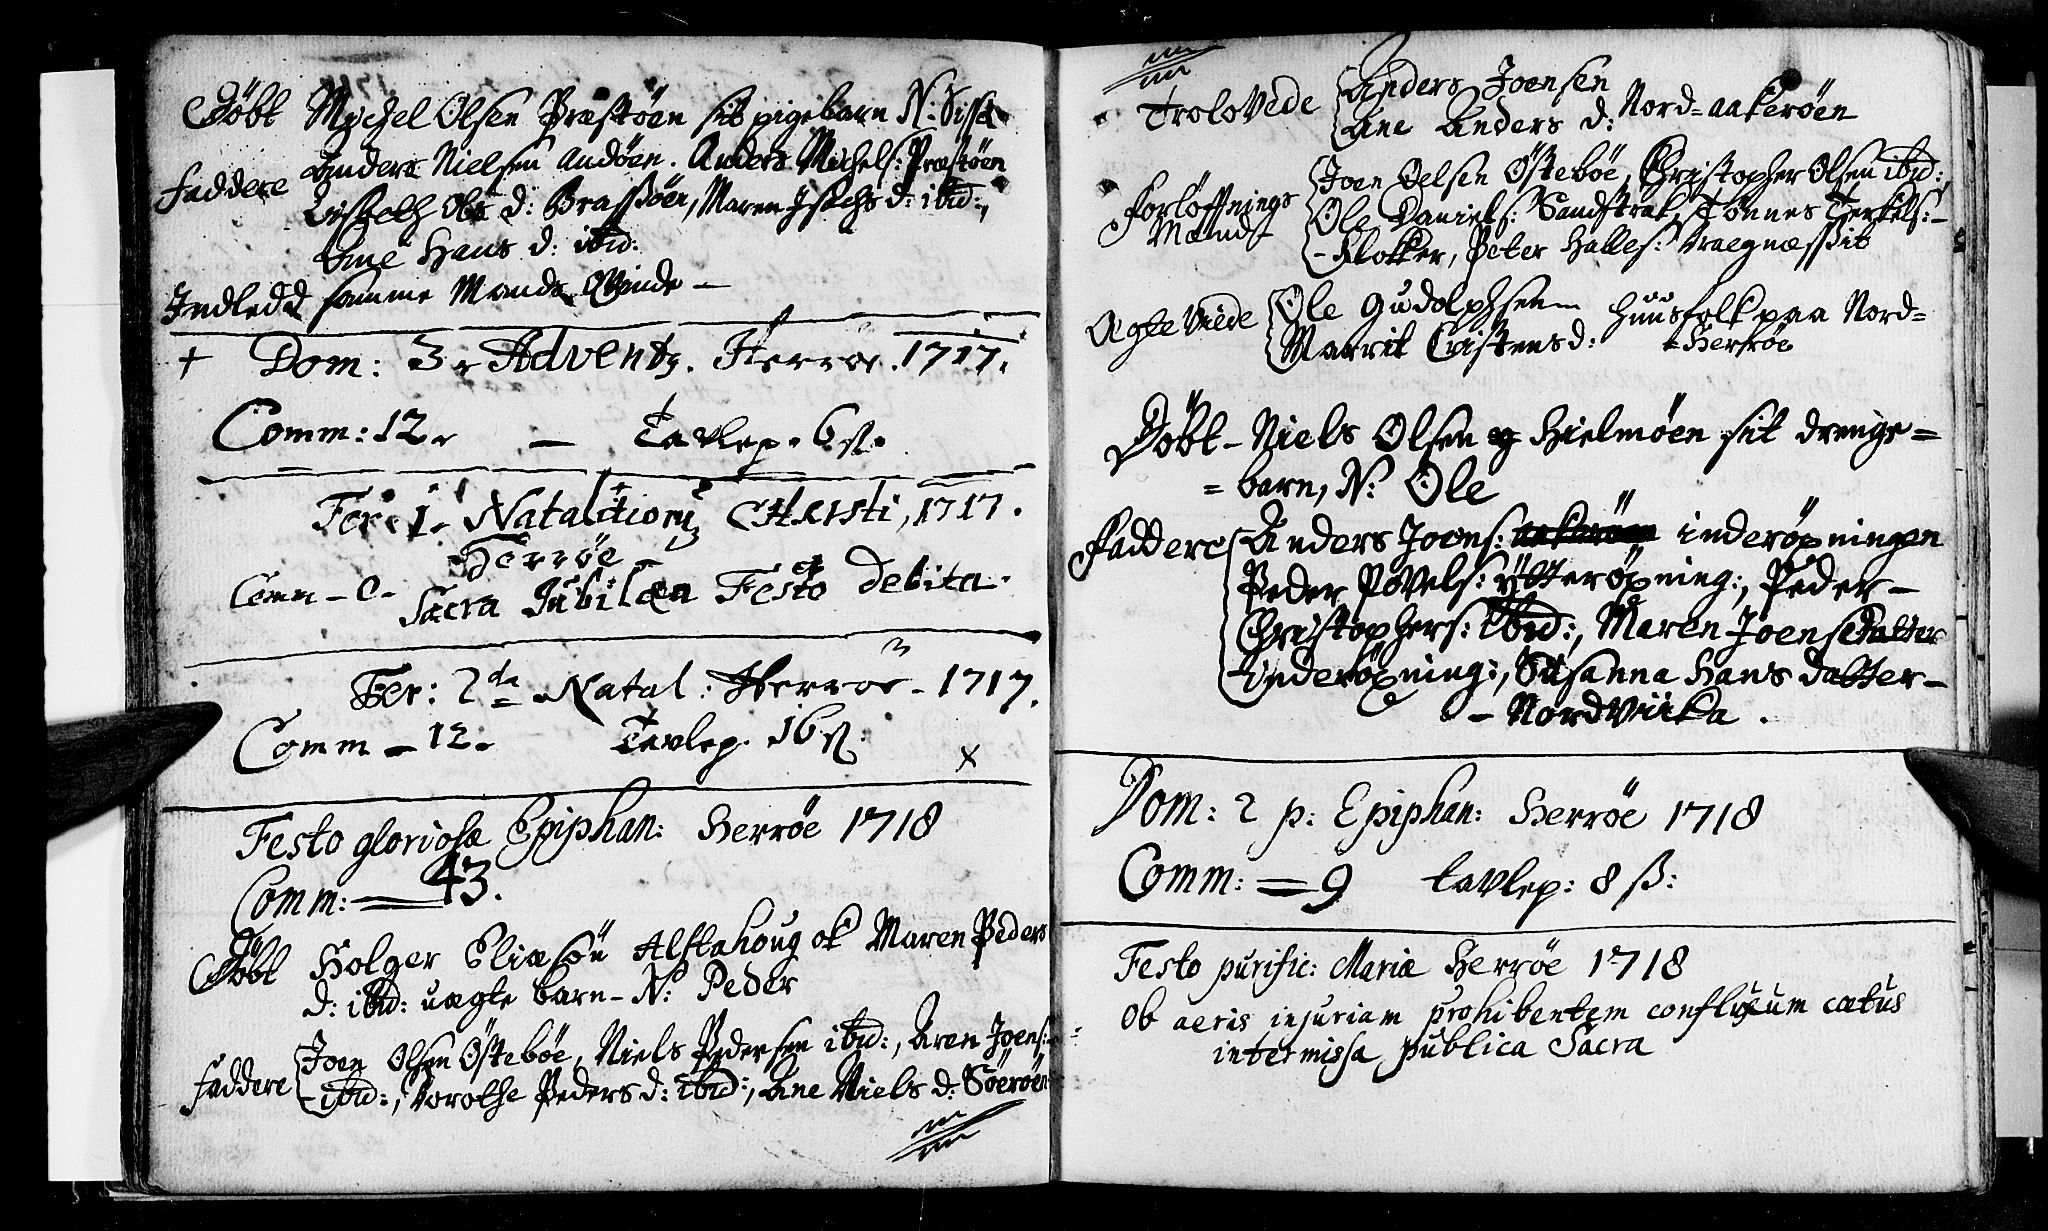 Døbt Mychel Olsen Præstøen sit pigebarn N: Sisse
faddere Anders Nielsen Andøen. Anders Michels: Præstøen
Lisbeth Ols d: Brasøen, Maren Isachs d: ibid:,
Ane Hans d: ibid:
Indledd samme Mands Qvinde –
+ Dom: 3 Advent9. Herrøe. 1717.
Comm: 12. – Tavlep. 6 ß.
Fer. 1. Christi, 1717.
Herrøe
Comm – 0 – Sacra Jubilæa Festo debita.
Fer: 2da Natal: Herrøe – 1717.
Comm – 12. Tavlep. 16 ß. x
Festo gloriosæ Epiphan: Herrøe 1718
Comm: = 43.
Døbt Holger Eliasøn Alstahoug ok Maren Peders
d: ibid: uægte barn – N: Peder
faddere Joen Olsen Østebøe, Niels Pedersen ibid:, Aren Joens:
– ibid:, Dorothe Peders d: ibid:, Ane Niels d: Søerøen
Trolovede Anders Joensen
Ane Anders d: Nord-aakerøen
Forløffnings Joen Oelsen Østebøe, Christopher Olsen ibid:,
Mænd Ole Daniels: Sandstrak, Tønnes Terkels: –
– Flokker, Peter Halles:
Ægte Viede Ole Gudolphsen Huusfolk paa Nord=
Marrit Cristens d: = Herrøe
Døbt – Niels Olsen Hielmøen sit drenge=
= barn, N: Ole
Faddere Anders Joens: inderøpningen
Peder Povels: ytterøpning:, Peder –
Christophers: ibid:, Maren Joensdatter
inderøpning:, Susanna Hans datter –
– Nordviika.
Dom: 2 p: Epiphan: Herrøe 1718
Comm: = 9 tavlep: 8 ß:
Festo purific: Mariæ Herrøe 1718
Ob aeris injuriam prohibentem confluxum cætus
intermissa publica Sacra